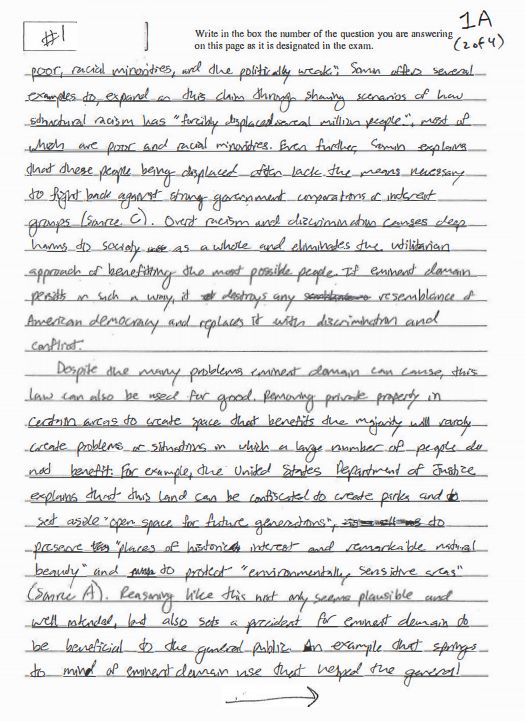 #1
Write in the box the number of the question you are answering
on this page as it is designated in the exam.
1A
(2 of 4)
poor, racial minorities, and the politically weak". Somin offers several
examples to expand on this claim through sharing scenarios of how
structural racism has "forcibly displaced several million people", most of
which are poor and racial minorities. Even further, Somin explains
that these people being displaced often lack the means necessary
to fight back against strong government corporations or interest
groups (Source C). Overt racism and discrimination causes deep
harms to society as a whole and eliminates the utilitarian
approach of benefitting the most possible people. If eminent domain
persists in such a way, it destroys any resemblance of
American democracy and replaces it with discrimination and
conflict.
Despite the many problems eminent domain can cause, this
law can also be used for good. Removing private property in
certain areas to create space that benefits the majority will rarely
create problems or situations in which a large number of people do
not benefit. For example, the United States Department of Justice
explains that this land can be confiscated to create parks and to
set aside "open space for future generations", to
preserve "places of historic interest and remarkable natural
beauty" and to protect "environmentally sensitive areas"
(Source A). Reasoning like this not only seems plausible and
well intended, but also sets a precident for eminent domain to
be beneficial to the general public. An example that springs
to mind of eminent domain use that helped the general